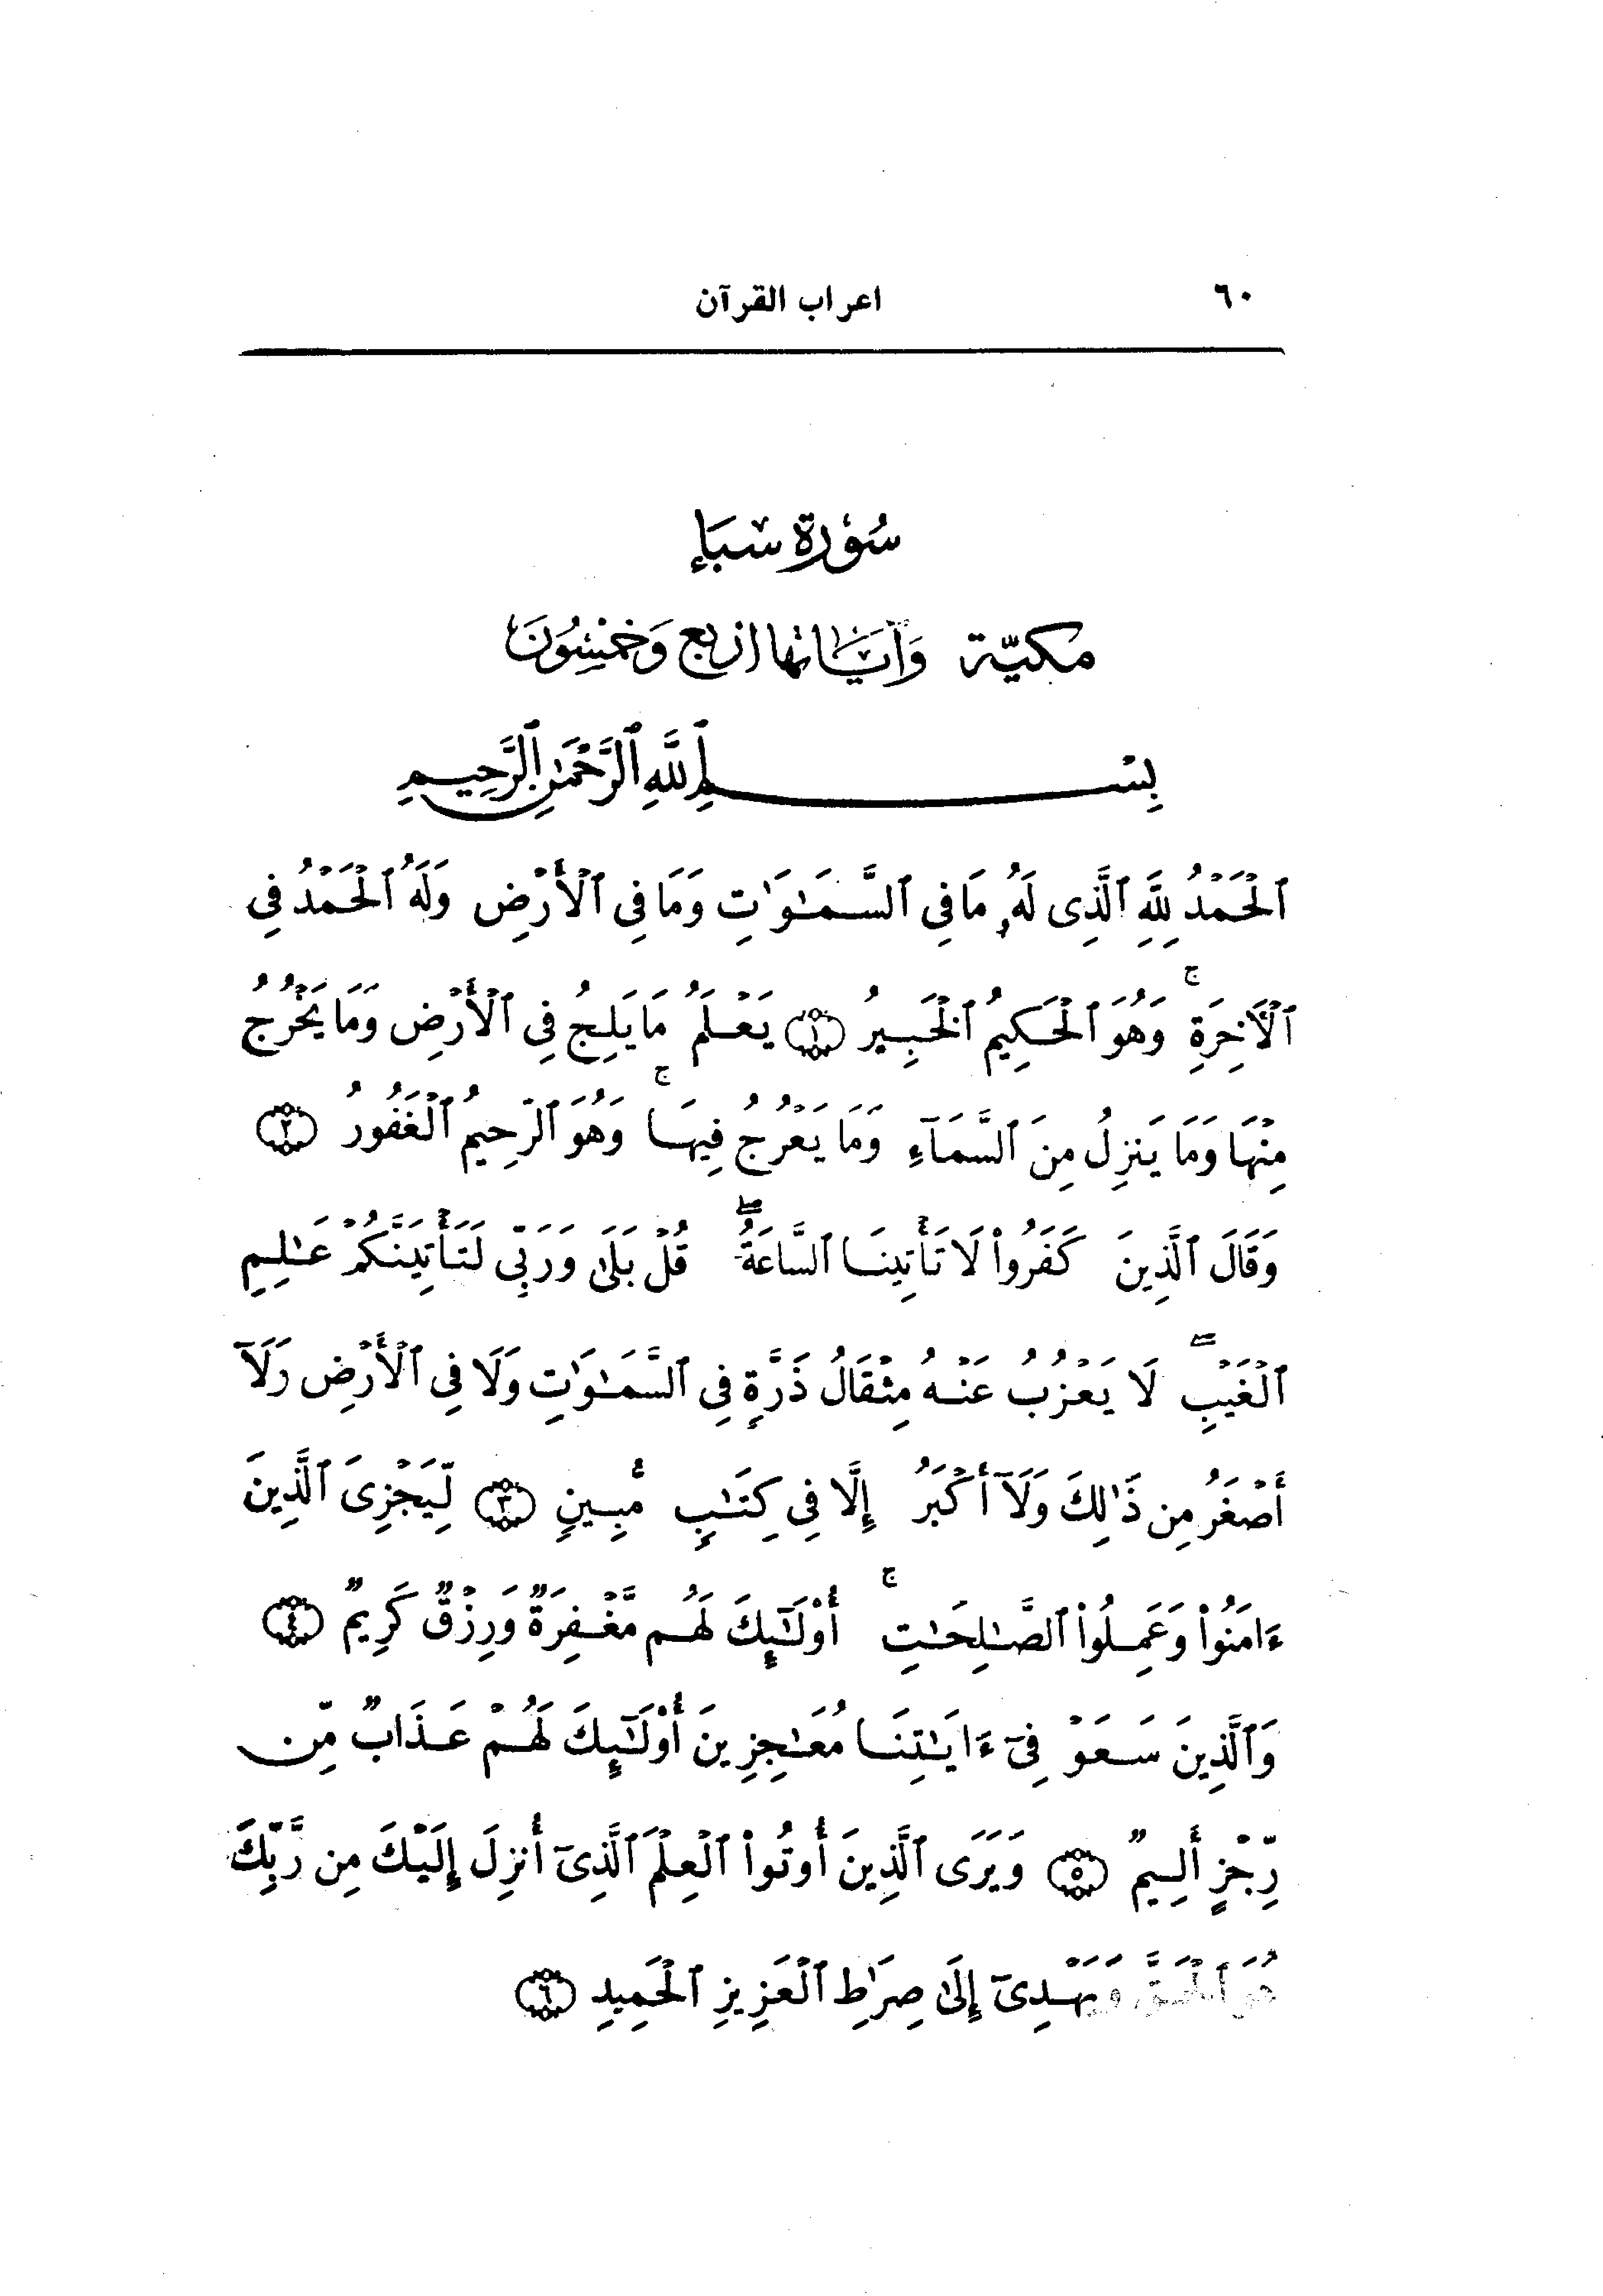 ٦٠ اعراب القرآن
سُوْرَة سَبَإ
مكيّة وَآيَاتها ارْبَع وَخَمْسُونَ
بِسْمِ ٱللَّهِ ٱلرَّحْمَٰنِ ٱلرَّحِيمِ
ٱلْحَمْدُ لِلَّهِ ٱلَّذِى لَهُۥ مَا فِى ٱلسَّمَٰوَٰتِ وَمَا فِى ٱلْأَرْضِ وَلَهُ ٱلْحَمْدُ فِى
ٱلْأَخِرَةِ ۚ وَهُوَ ٱلْحَكِيمُ ٱلْخَبِيرُ ١ يَعْلَمُ مَا يَلِجُ فِى ٱلْأَرْضِ وَمَا يَخْرُجُ
مِنْهَا وَمَا يَنزِلُ مِنَ ٱلسَّمَآءِ وَمَا يَعْرُجُ فِيهَا ۚ وَهُوَ ٱلرَّحِيمُ ٱلْغَفُورُ ٢
وَقَالَ ٱلَّذِينَ كَفَرُوا۟ لَا تَأْتِينَا ٱلسَّاعَةُ ۖ قُلْ بَلَىٰ وَرَبِّى لَتَأْتِيَنَّكُمْ عَٰلِمِ
ٱلْغَيْبِ ۖ لَا يَعْزُبُ عَنْهُ مِثْقَالُ ذَرَّةٍ فِى ٱلسَّمَٰوَٰتِ وَلَا فِى ٱلْأَرْضِ وَلَآ
أَصْغَرُ مِن ذَٰلِكَ وَلَآ أَكْبَرُ إِلَّا فِى كِتَٰبٍ مُّبِينٍ ٣ لِّيَجْزِىَ ٱلَّذِينَ
ءَامَنُوا۟ وَعَمِلُوا۟ ٱلصَّٰلِحَٰتِ ۚ أُو۟لَٰٓئِكَ لَهُم مَّغْفِرَةٌ وَرِزْقٌ كَرِيمٌ ٤
وَٱلَّذِينَ سَعَوْ فِىٓ ءَايَٰتِنَا مُعَٰجِزِينَ أُو۟لَٰٓئِكَ لَهُمْ عَذَابٌ مِّن
رِّجْزٍ أَلِيمٌ ٥ وَيَرَى ٱلَّذِينَ أُوتُوا۟ ٱلْعِلْمَ ٱلَّذِىٓ أُنزِلَ إِلَيْكَ مِن رَّبِّكَ
هُوَ ٱلْحَقَّ وَيَهْدِىٓ إِلَىٰ صِرَٰطِ ٱلْعَزِيزِ ٱلْحَمِيدِ ٦